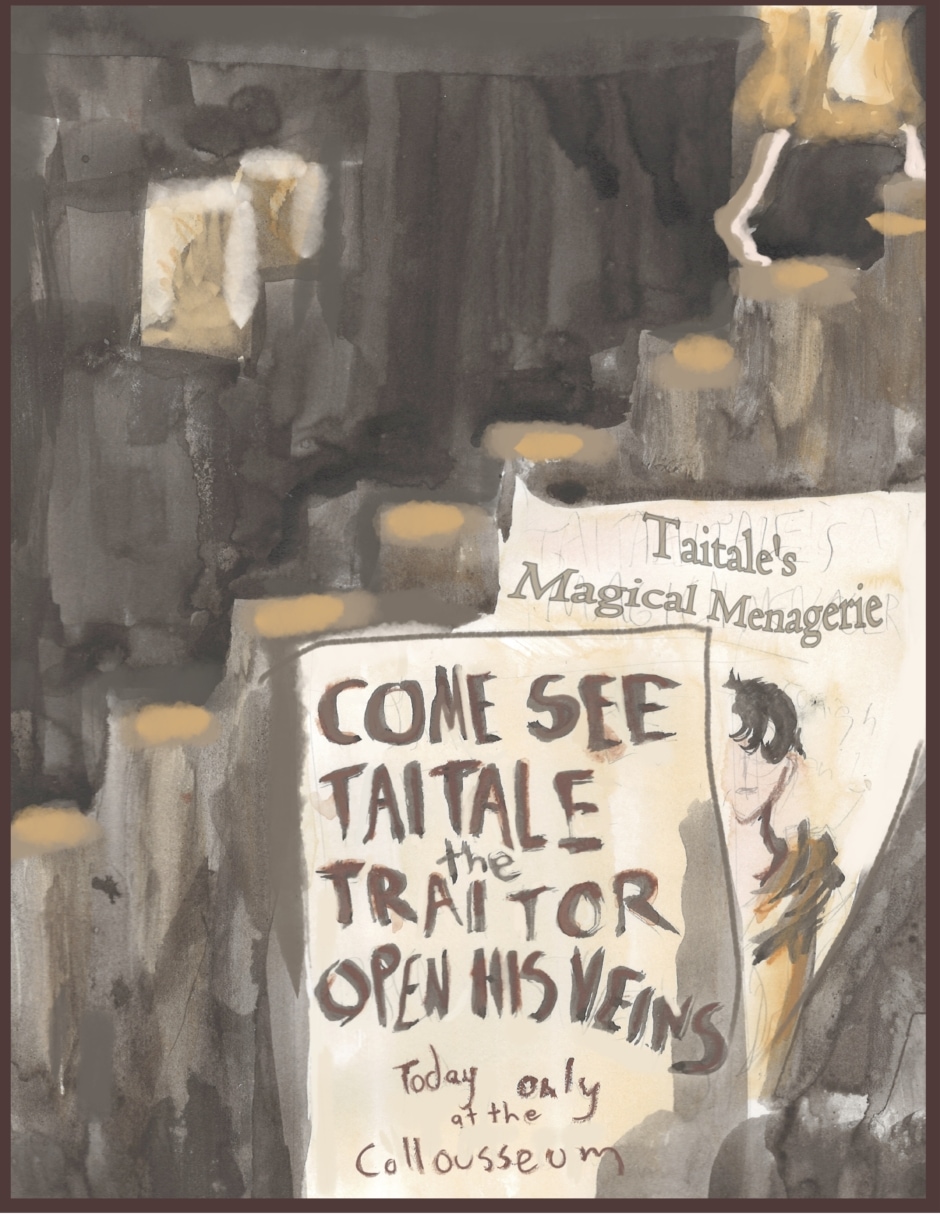 Taitale's
Magical Menagerie
COME SEE
TAITALE
the
TRAITOR
OPEN HIS VEINS
Today only
at the
Collousseum